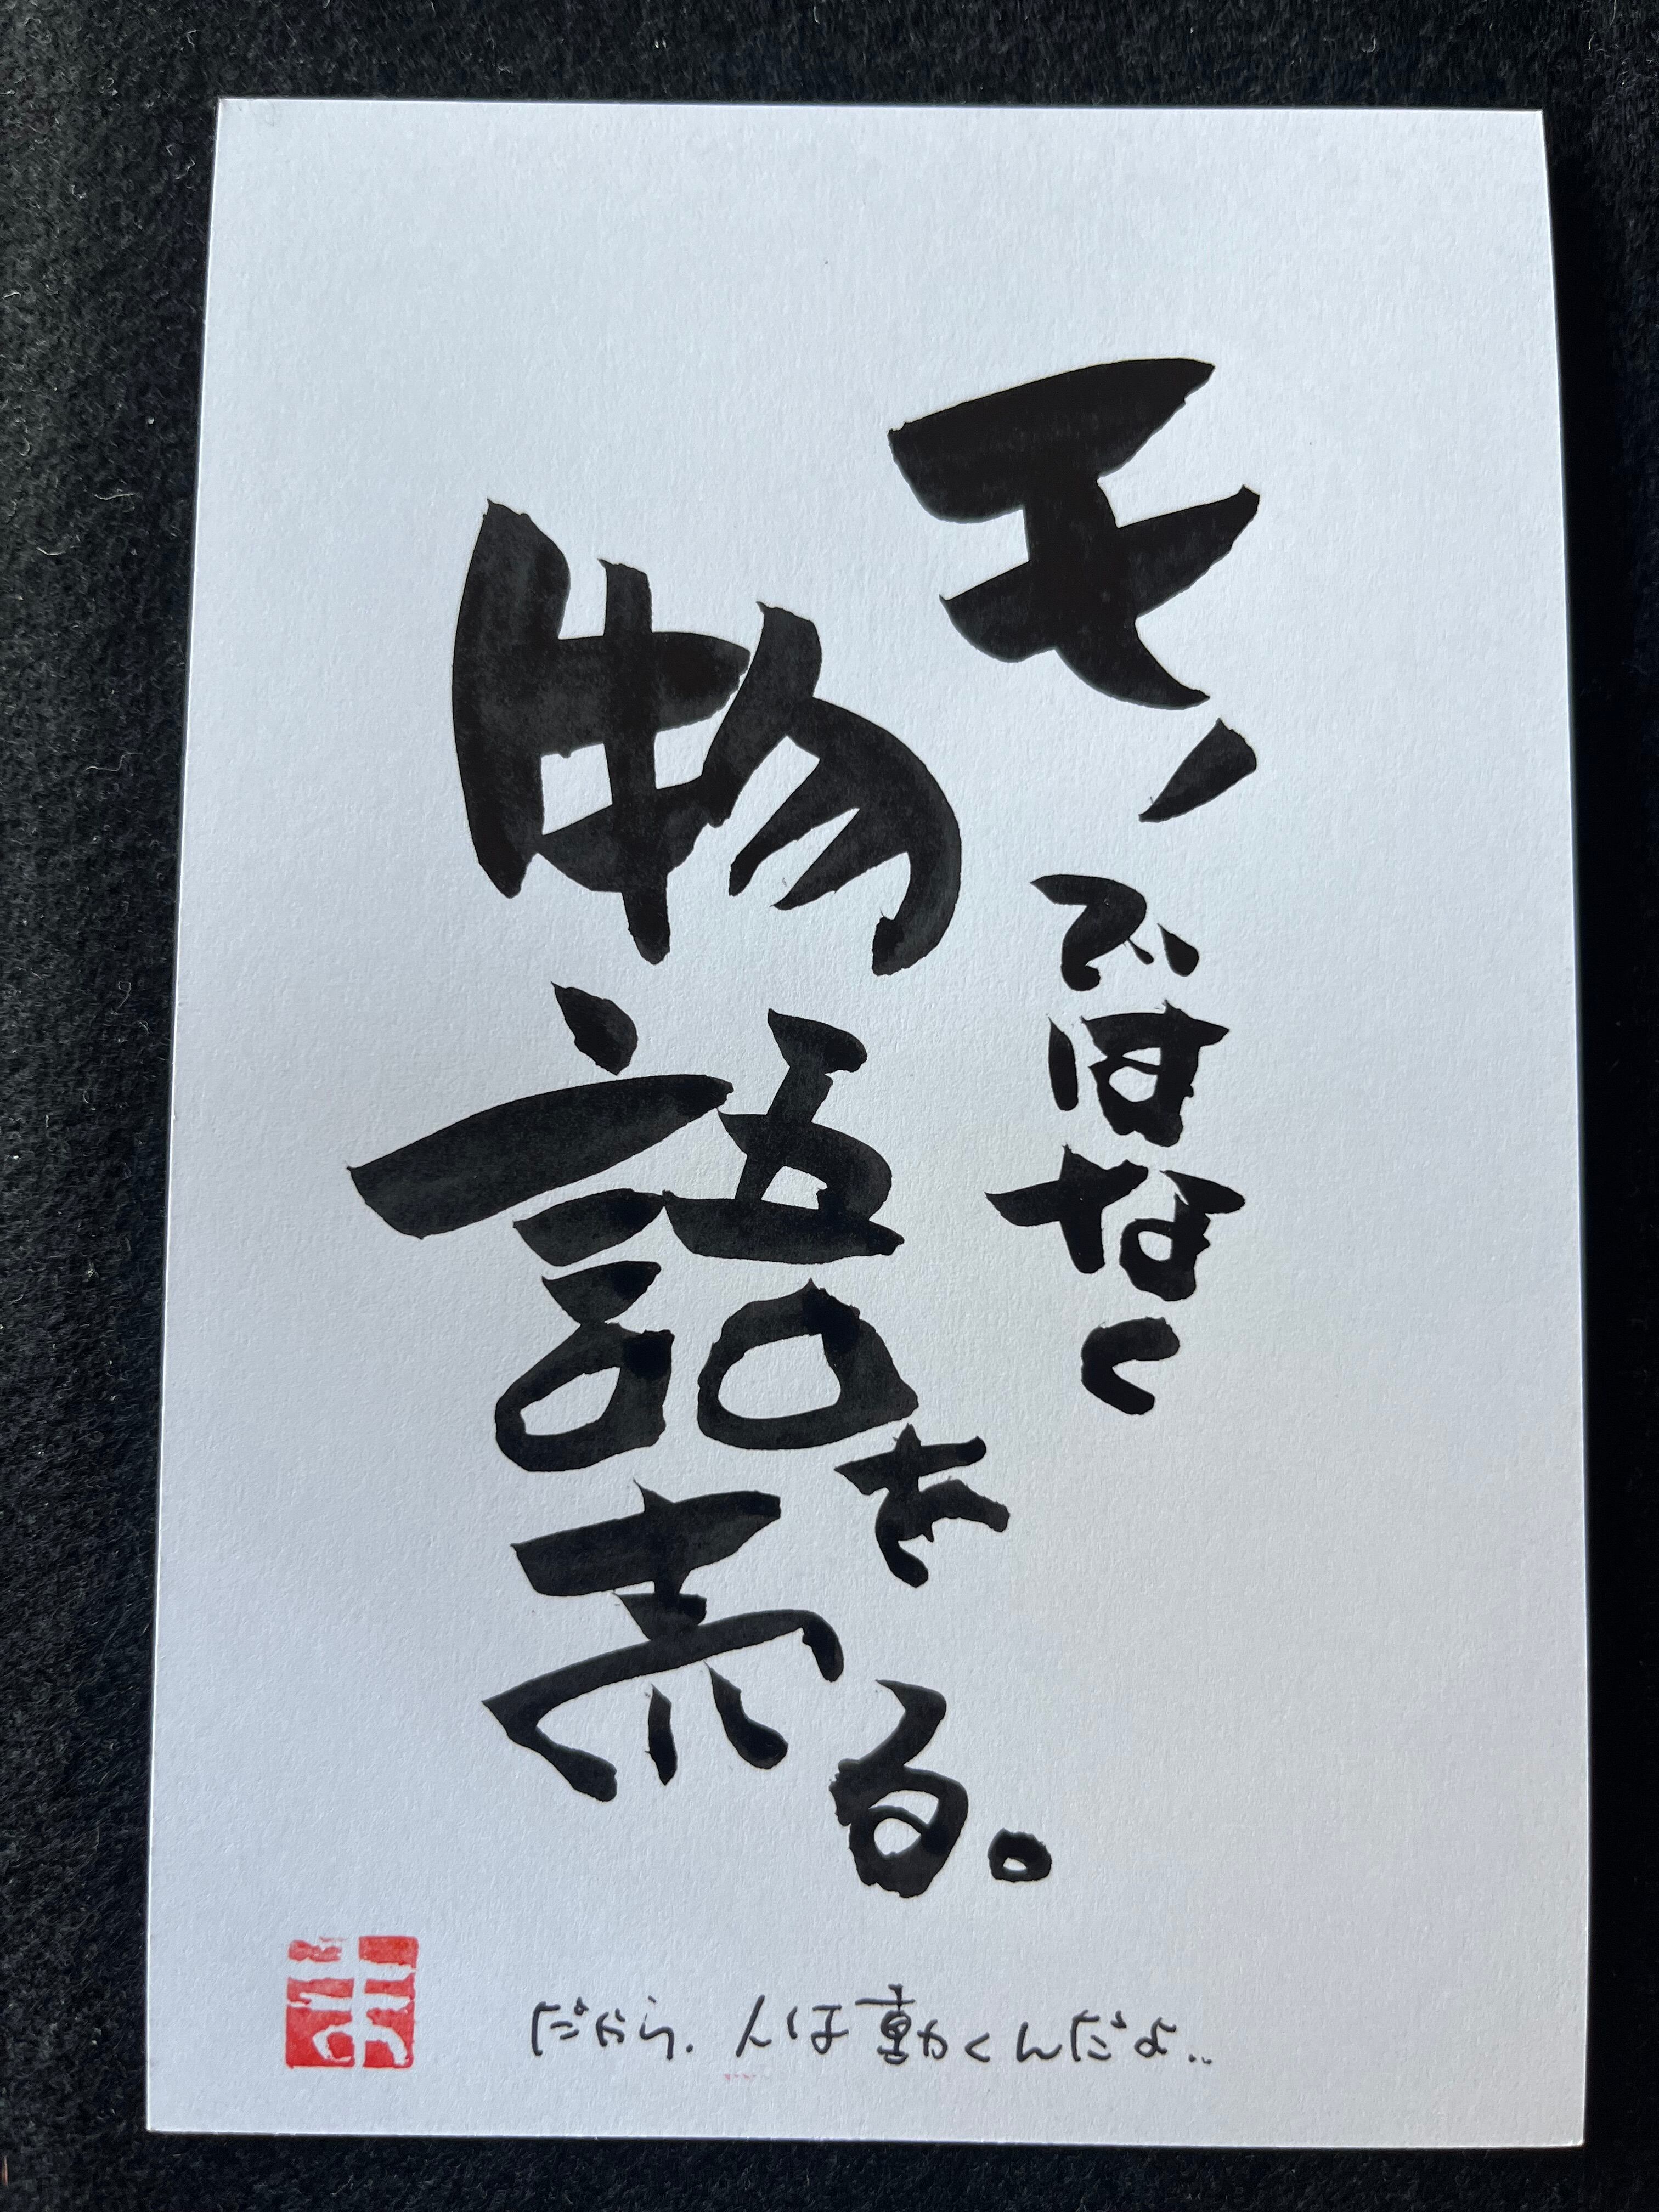 モノではなく
物語を売る。
だから、人は動くんだよ..
ま